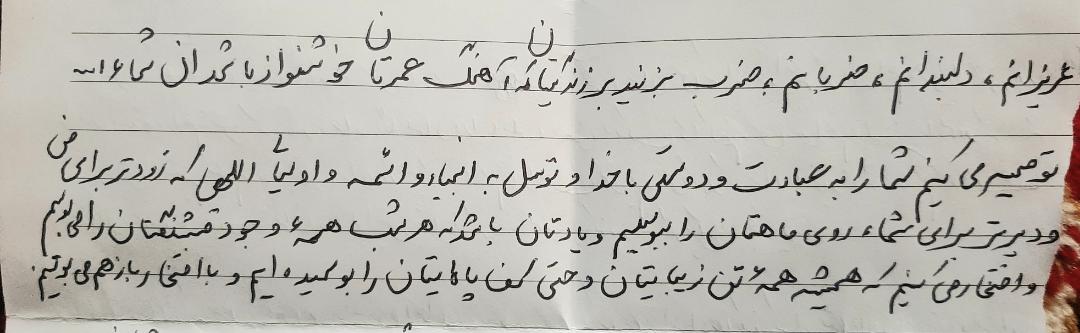 عزیزانم، دلبندانم، ضربانم، ضرب بزنید بر زندگیتان که آهنگ عمرتان خوشنواز باشد ان شاءالله
توصیه می کنم شما را به عبادت و دوستی با خدا و توسل به انبیاء و ائمه و اولیاء اللهی که زودتر برای من
و دیرتر برای شما، روی ماهتان را ببوسیم و یادتان باشد که هر شب همهٔ وجود قشنگتان را می بوسم
و افتخار می کنیم که همیشه همهٔ تن زیبایتان و حتی کف پاهایتان را بوسیده ایم و با افتخار باز هم می بوسیم.